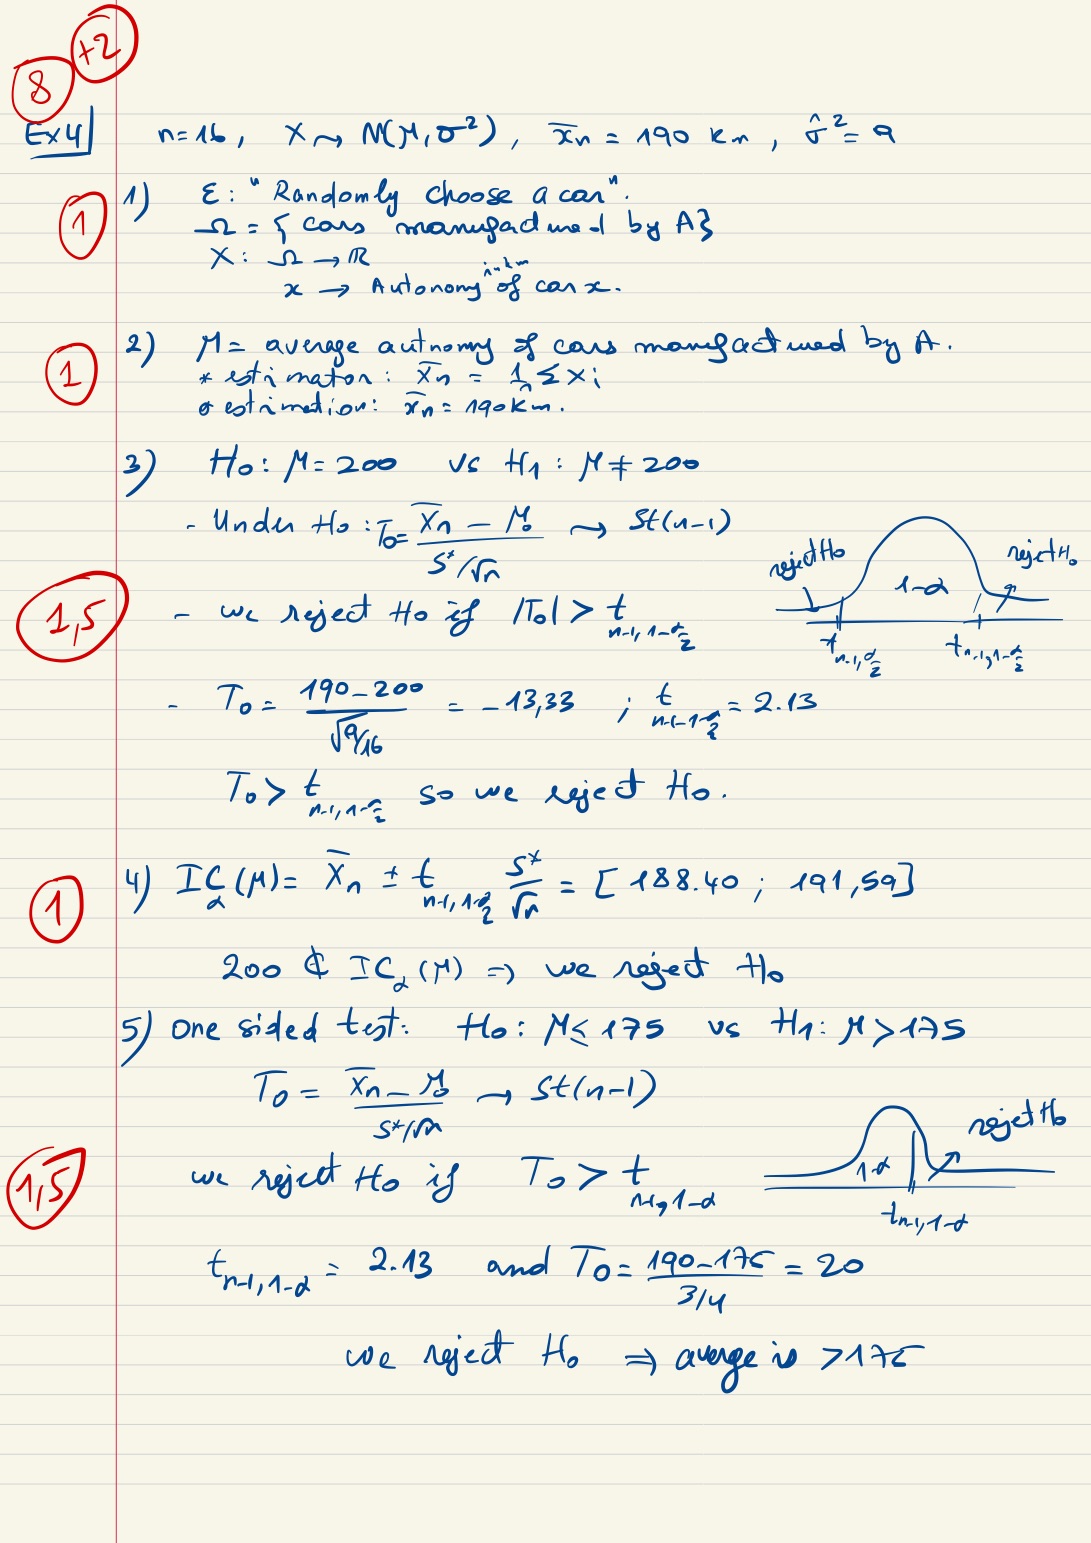 +2
8
Ex4 n=16, X ⤳ N(μ, σ²), x̄n = 190 km, σ̂² = 9
1
1) ε: "Randomly choose a car".
Ω = { cars manufactured by A}
X: Ω → ℝ
x → Autonomy in km of car x.
1
2) μ = average autnomy of cars manufactured by A.
* estimator: X̄n = 1/n Σ Xi
* estimation: x̄n = 190km.
3) H0: μ = 200 vs H1: μ ≠ 200
- Under H0: T0 = (X̄n - μ0)/(S*/√n) ⤳ St(n-1)
reject H0 1-α reject H0
t n-1, α/2 t n-1, 1-α/2
1,5
- we reject H0 if |T0| > t n-1, 1-α/2
- T0 = (190-200)/√(9/16) = -13,33 ; t n-1, 1-α/2 = 2.13
T0 > t n-1, 1-α/2 so we reject H0.
1
4) ICα(μ) = X̄n ± t n-1, 1-α/2 S*/√n = [188.40 ; 191,59]
200 ∉ ICα(μ) ⇒ we reject H0
5) One sided test: H0: μ ≤ 175 vs H1: μ > 175
T0 = (X̄n - μ0)/(S*/√n) ⤳ St(n-1)
1-α reject H0
t n-1, 1-α
1,5
we reject H0 if T0 > t n-1, 1-α
t n-1, 1-α = 2.13 and T0 = (190-175)/(3/4) = 20
we reject H0 ⇒ average is >175